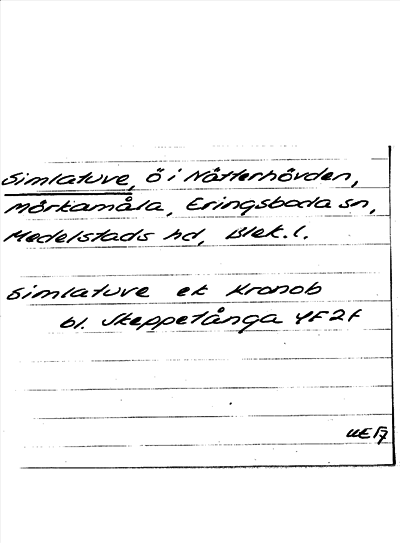 Simlatuve, ö i Nåtterhövden,
Mörkamåla, Eringsboda sn,
Medelstads hd, Blek. l.
Simlatuve ek Kronob
bl. Skeppetånga 4F2f